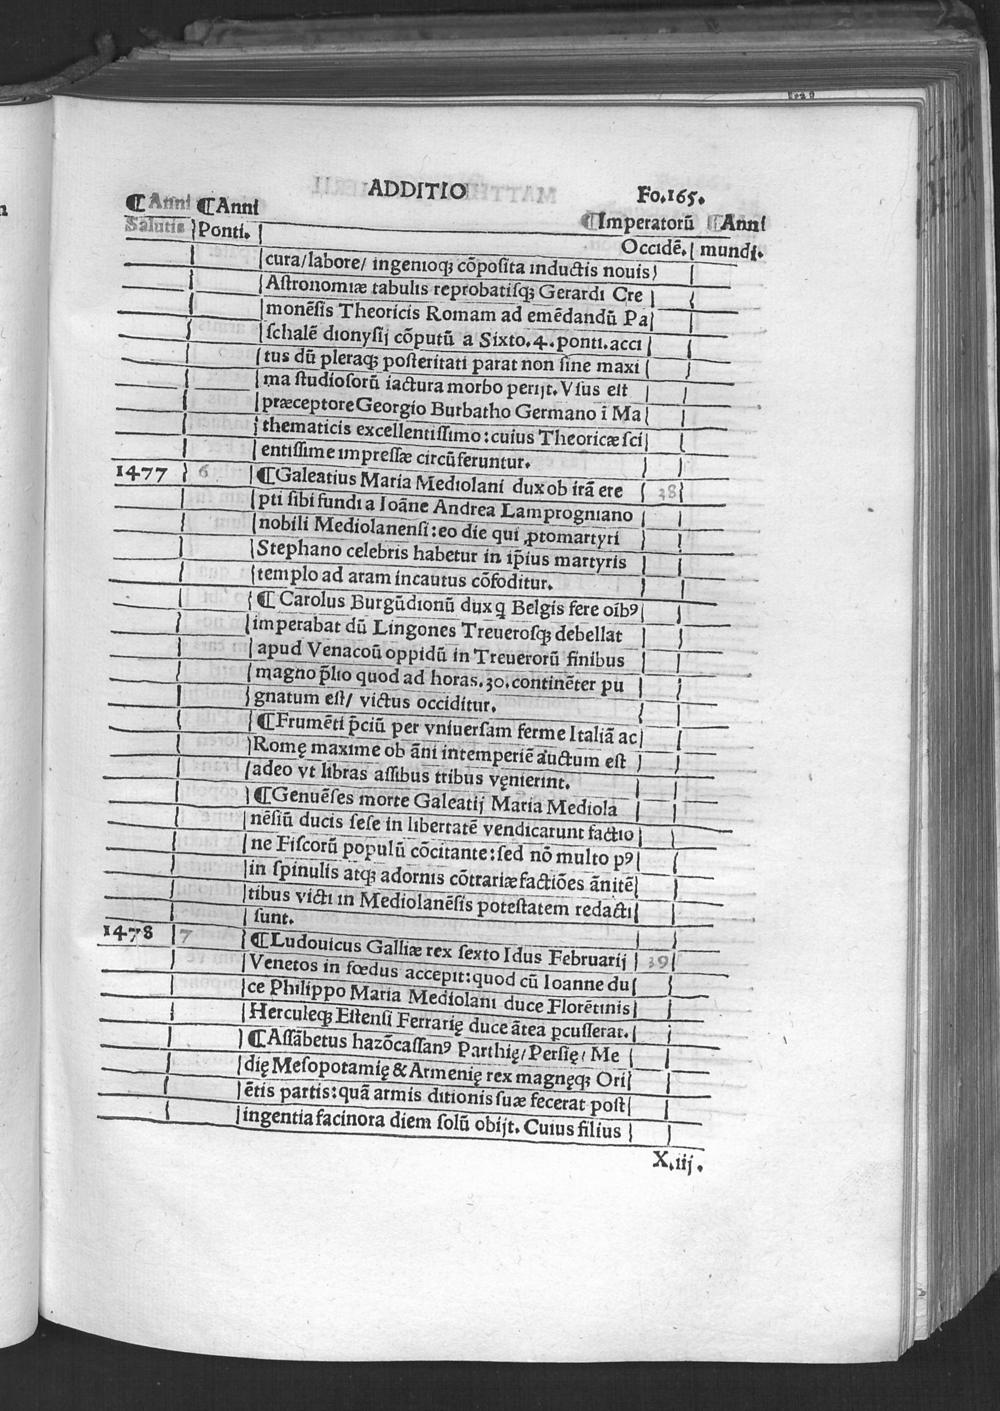 ADDITIO Fo.165.
¶Anni ¶Anni ¶Imperatorū ¶Anni
Salutis Ponti. Occidē. mundi.
cura/labore/ ingenioqꝫ cōposita inductis nouis
Astronomiæ tabulis reprobatisqꝫ Gerardi Cre
monēsis Theoricis Romam ad emēdandū Pa
schalē dionysij cōputū a Sixto.4.ponti.acci
tus dū pleraqꝫ posteritati parat non sine maxi
ma studiosorū iactura morbo perijt. Vsus est
præceptore Georgio Burbatho Germano ī Ma
thematicis excellentissimo: cuius Theoricæ sci
entissime impressæ circūferuntur.
1477 6 ¶Galeatius Maria Mediolani dux ob irā ere 38
pti sibi fundi a Ioāne Andrea Lamprogniano
nobili Mediolanensi: eo die qui ꝓtomartyri
Stephano celebris habetur in ip̄ius martyris
templo ad aram incautus cōfoditur.
¶Carolus Burgūdionū dux q̄ Belgis fere oībꝰ
imperabat dū Lingones Treuerosqꝫ debellat
apud Venacoū oppidū in Treuerorū finibus
magno p̄lio quod ad horas.30.continēter pu
gnatum est/ victus occiditur.
¶Frumēti p̄ciū per vniuersam ferme Italiā ac
Romę maxime ob āni intemperiē auctum est
adeo vt libras assibus tribus vęnierint.
¶Genuēses morte Galeatij Maria Mediola
nēsiū ducis sese in libertatē vendicarunt factio
ne Fiscorū populū cōcitante: sed nō multo pꝰ
in spinulis atqꝫ adornis cōtrariæ factiōes ānitē
tibus victi in Mediolanēsis potestatem redacti
sunt.
1478 7 ¶Ludouicus Galliæ rex sexto Idus Februarij 39
Venetos in fœdus accepit: quod cū Ioanne du
ce Philippo Maria Mediolani duce Florētinis
Herculeqꝫ Estensi Ferrarię duce ātea ꝑcusserat.
¶Assābetus hazōcassanꝰ Parthię/ Persię/ Me
dię Mesopotamię & Armenię rex magnęqꝫ Ori
ētis partis: quā armis ditionis suæ fecerat post
ingentia facinora diem solū obijt. Cuius filius
X.iij.